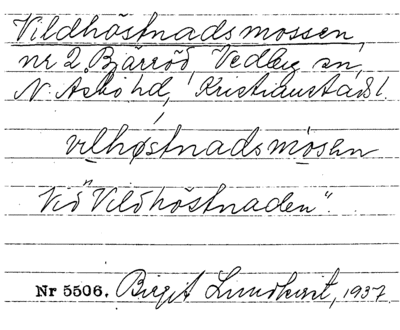 Vildhöstnadsmossen,
nr 2 Bjärröd, Vedby sn,
N. Åsbo hd, Kristianstads l.
vɩlhøstnadsmosən
Vid "Vildhöstnaden".
Nr 5506. Birgit Lundkvist, 1937.